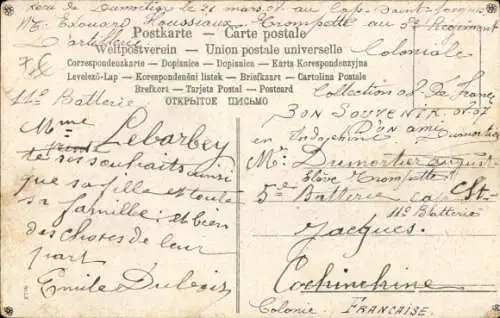 Recu de Dumortier le 26 mars 07 au Cap-Saint-Jacques
Mr Edouard Houssiaux Trompette au 5e Regiment
D'artillerie Coloniale
11e Batterie
Postkarte - Carte postale
Weltpostverein - Union postale universelle
Correspondenzkarte - Dopisnica - Dopisnice - Karta Korespondenzyjna
Levelező-Lap - Korespondenční lístek - Briefkaart - Cartolina Postale
Brefkort - Tarjeta Postal - Postcard
ОТКРЫТОЕ ПИСЬМО
Collection
BON SOUVENIR
en Indochine D'UN ami Dumortier
Mme Lebarbey
te ses souhaits ainsi
que sa fille et toute
sa famille: et bien
des choses de leur
part
Emile Dubois
Mr Dumortier August
Elève Trompette
5e Batterie cap St
11e Batterie
Jacques.
Cochinchine
Colonie. FRANCAISE.